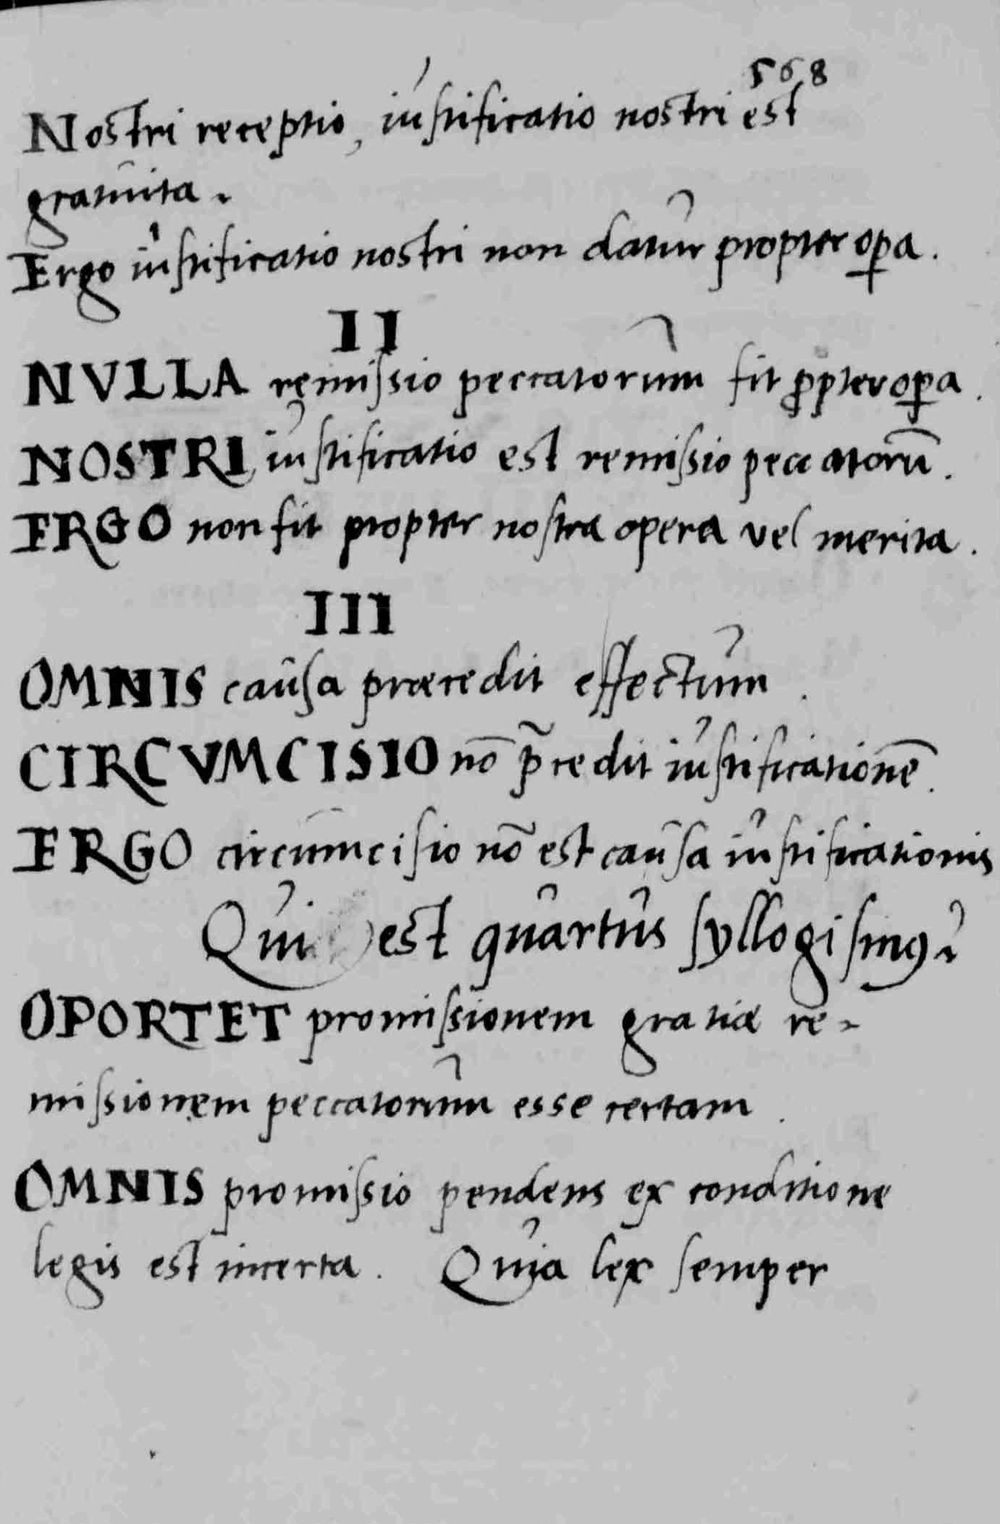 568
Nostri receptio, iustificatio nostri est
gratuita.
Ergo iustificatio nostri non datur propter oꝑa.
II
NVLLA remissio peccatorum fit ꝓpter oꝑa.
NOSTRI iustificatio est remissio peccatorū.
ERGO non fit propter nostra opera vel merita.
III
OMNIS causa præcedit effectum.
CIRCVMCISIO nō p̄cedit iustificationē.
ERGO circumcisio nō est causa iustificationis
Qui est quartus syllogismꝰ?
OPORTET promissionem gratiæ re-
missionem peccatorum esse certam.
OMNIS promissio pendens ex conditione
legis est incerta. Quia lex semper